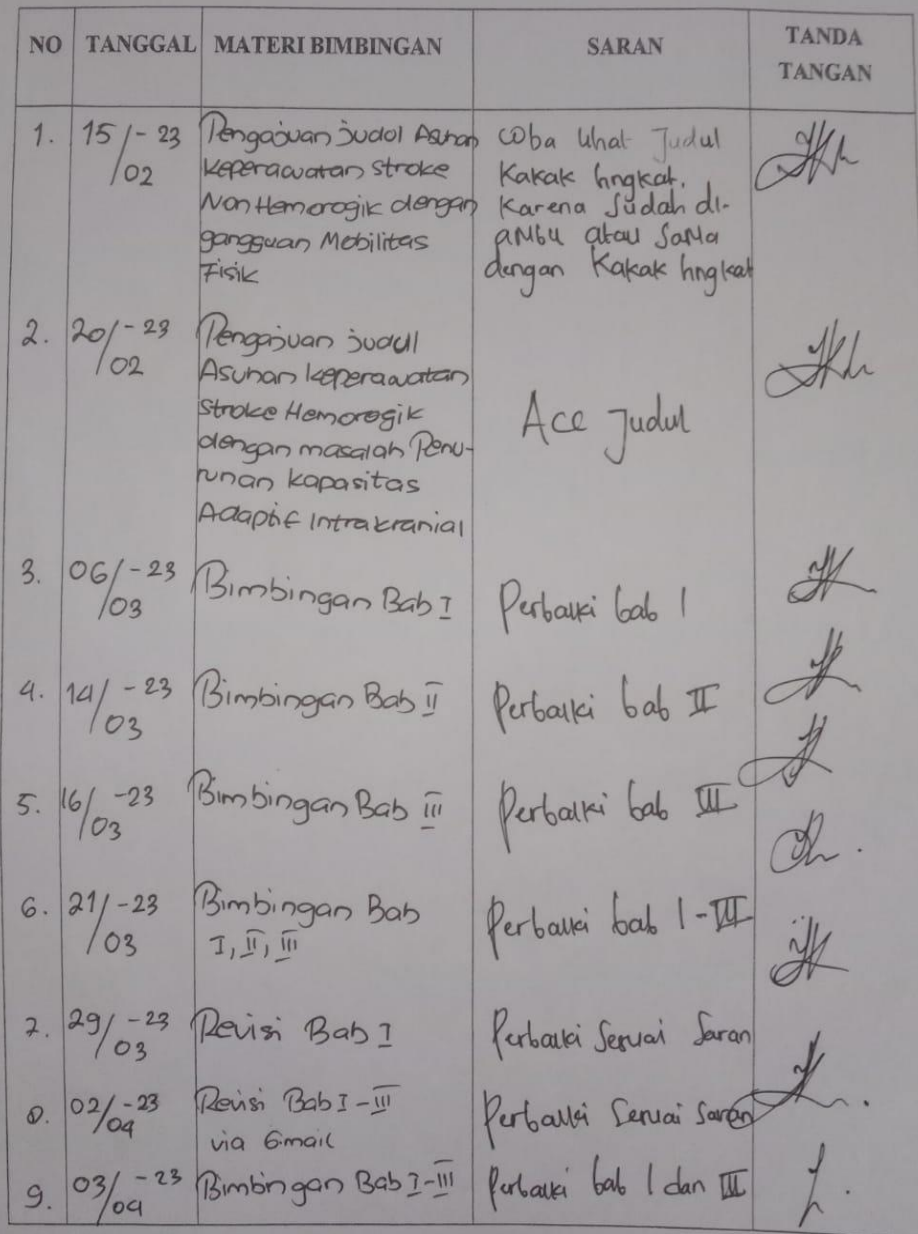 NO TANGGAL MATERI BIMBINGAN SARAN TANDA TANGAN
1. 15/02-23
Pengajuan Judul Asuhan
Keperawatan Stroke
Non Hemorogik dengan
gangguan Mobilitas
Fisik
Coba lihat Judul
Kakak tingkat.
Karena Sudah di-
ambil atau Sama
dengan Kakak tingkat
2. 20/02-23
Pengajuan judul
Asuhan keperawatan
Stroke Hemorogik
dengan masalah Penu-
runan kapasitas
Adaptif Intrakranial
Acc Judul
3. 06/03-23 Bimbingan Bab I Perbaiki bab I
4. 14/03-23 Bimbingan Bab II Perbaiki bab II
5. 16/03-23 Bimbingan Bab III Perbaiki bab III
6. 21/03-23 Bimbingan Bab
I, II, III
Perbaiki bab I-III
7. 29/03-23 Revisi Bab I Perbaiki Sesuai Saran
8. 02/04-23 Revisi Bab I-III
via Gmail
Perbaiki Sesuai Saran
9. 03/04-23 Bimbingan Bab I-III Perbaiki bab I dan III